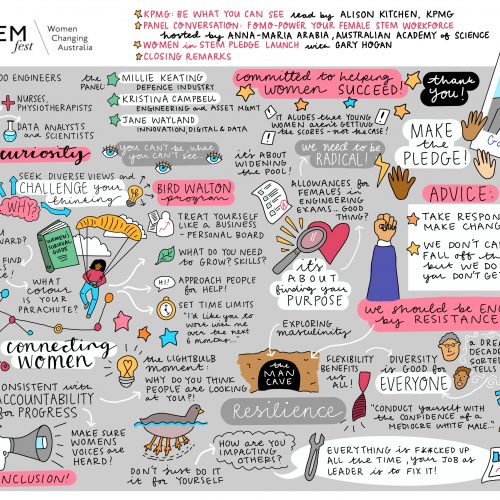 EM
fest
Women
Changing
Australia
KPMG: BE WHAT YOU CAN SEE lead by ALISON KITCHEN, KPMG
PANEL CONVERSATION: FOMO-POWER YOUR FEMALE STEM WORKFORCE
hosted by ANNA-MARIA ARABIA, AUSTRALIAN ACADEMY of SCIENCE
WOMEN in STEM PLEDGE LAUNCH with GARY HOGAN
CLOSING REMARKS
OO ENGINEERS
NURSES,
PHYSIOTHERAPISTS
DATA ANALYSTS
and SCIENTISTS
the
PANEL
MILLIE KEATING
DEFENCE INDUSTRY
KRISTINA CAMPBELL
ENGINEERING and ASSET MGMT
JANE WAYLAND
INNOVATION, DIGITAL & DATA
curiosity
you can't be what
you can't see
SEEK DIVERSE VIEWS and
CHALLENGE your
thinking
WHY?
WARD?
FIND
LES
E!
WOMEN'S
SURVIVAL
GUIDE
WHAT
COLOUR
IS YOUR
PARACHUTE?
BIRD WALTON
program
TREAT YOURSELF
LIKE A BUSINESS
- PERSONAL BOARD
WHAT DO YOU NEED
to GROW? SKILLS?
HI!
APPROACH PEOPLE
for HELP!
SET TIME LIMITS
"I'd like you to
work with me
over the next
6 months..."
connecting
WOMEN
ONSISTENT with
ACCOUNTABILITY
for PROGRESS
MAKE SURE
WOMENS
VOICES are
HEARD!
NCLUSION!
the LIGHTBULB
moment:
WHY DO YOU THINK
PEOPLE are LOOKING
AT YOU?!
DON'T JUST DO IT
it for YOURSELF
HOW are YOU
IMPACTING
OTHERS?
committed to helping
WOMEN SUCCEED!
IT ALUDES that YOUNG
WOMEN aren't GETTING
the SCORES - not the CASE!
it's ABOUT
WIDENING
the POOL!
we need to be
RADICAL!
ALLOWANCES for
FEMALES in
ENGINEERING
EXAMS - GOOD
THING?
it's
ABOUT
finding your
PURPOSE
EXPLORING
masculinity
the
MAN
CAVE
Resilience
FLEXIBILITY
BENEFITS
us ALL!
DIVERSITY
is GOOD for
EVERYONE
"CONDUCT yourself WITH
the CONFIDENCE OF A
MEDIOCRE WHITE MALE..."
EVERYTHING is F*#CKED UP
ALL the TIME, your JOB as
LEADER is TO FIX IT!
thank
you!
MAKE
the
PLEDGE!
ADVICE:
TAKE RESPON
MAKE CHANG
WE DON'T CA
FALL off th
but WE DO
YOU DON'T GE
we should be EN
by RESISTANCE
A DREA
DECADE
SORTE
TELLS